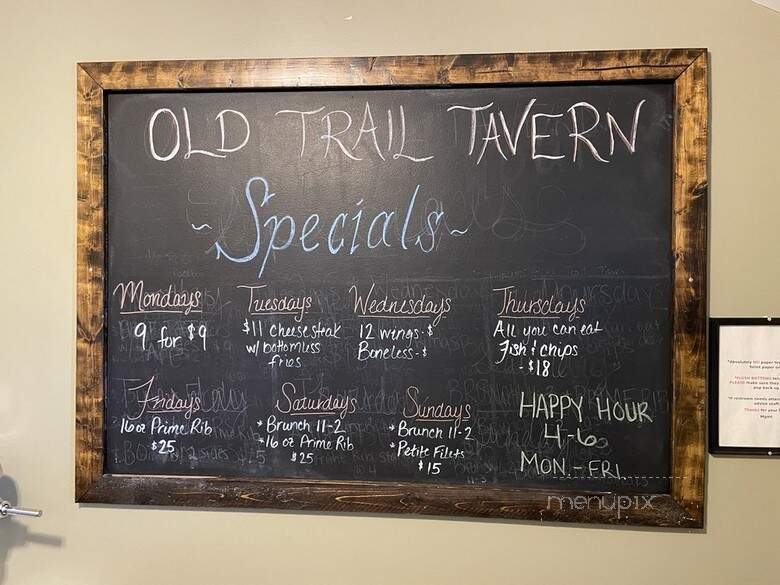 OLD TRAIL TAVERN
~ Specials ~
Mondays
9 for $9
Tuesdays
$11 cheesesteak
w/ bottomless
fries
Wednesdays
12 wings - $
Boneless - $
Thursdays
All you can eat
Fish & chips
- $18
Fridays
16 oz Prime Rib
$25
Saturdays
* Brunch 11-2
* 16 oz Prime Rib
$25
Sundays
* Brunch 11-2
* Petite Filets
$15
HAPPY HOUR
4-6
MON.-FRI.
menupix